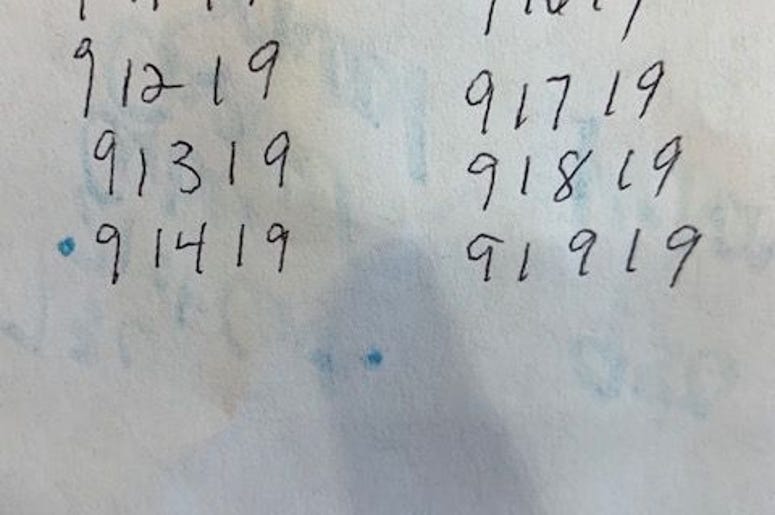 91219
91319
91419
91719
91819
91919